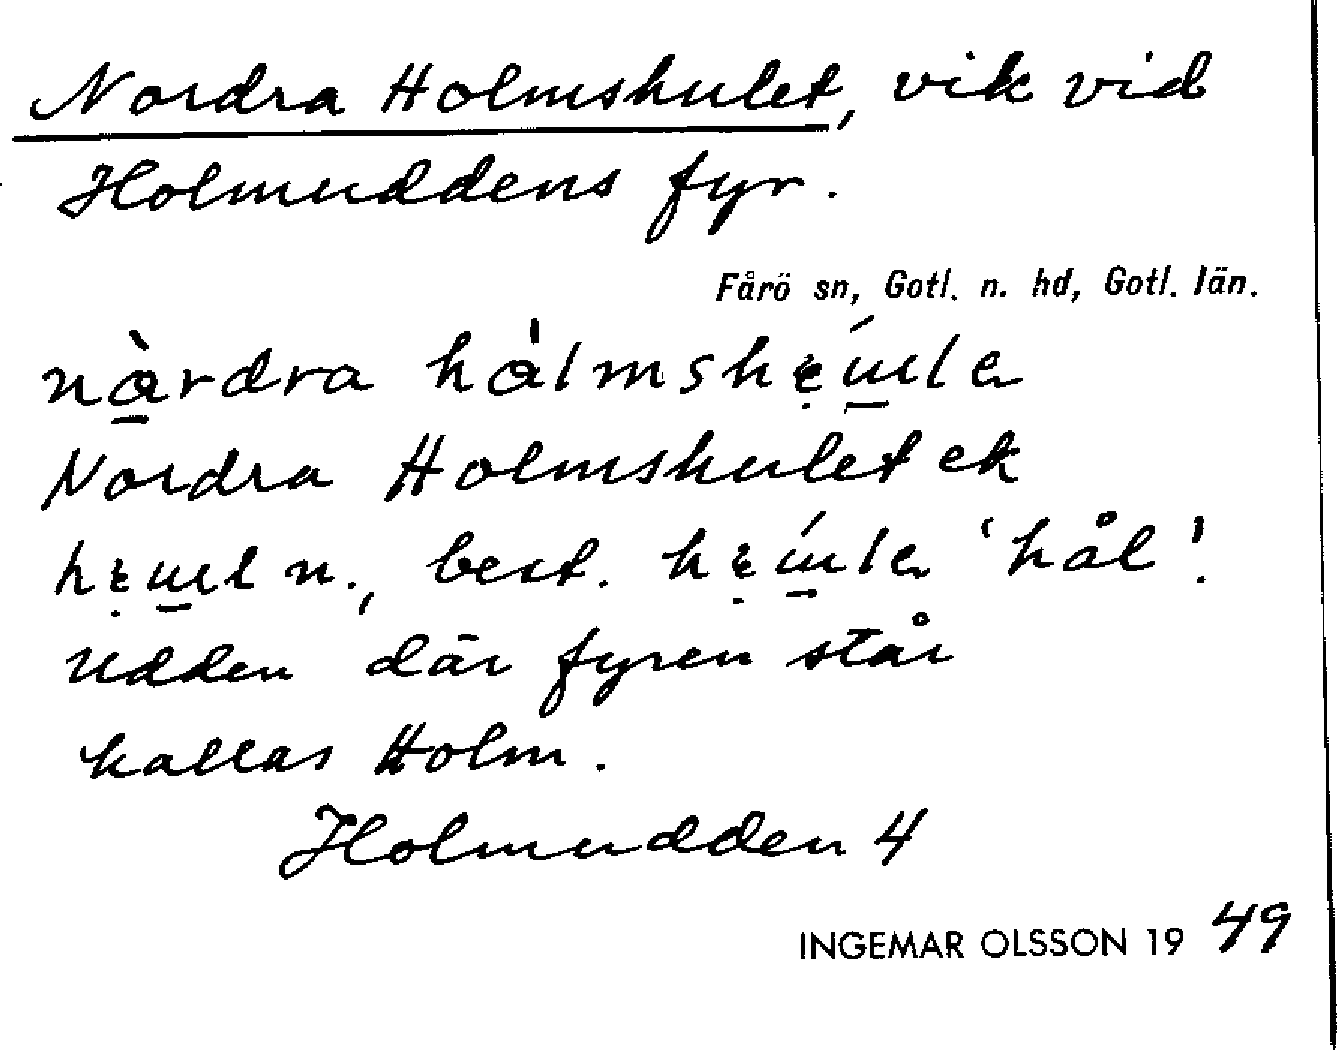 Nordra Holmshulet, vik vid
Holmuddens fyr.
Fårö sn, Gotl. n. hd, Gotl. län.
nàrdra
Nordra Holmshulet ek
n., best. 'hål'.
Udden där fyren står
kallas Holm.
Holmudden 4
INGEMAR OLSSON 19 49